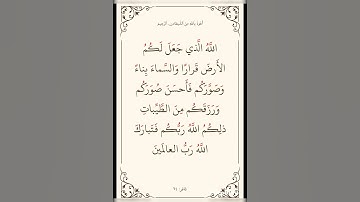 أعوذ بالله من الشيطان الرجيم
اللَّهُ الَّذي جَعَلَ لَكُمُ
الأَرضَ قَرارًا وَالسَّماءَ بِناءً
وَصَوَّرَكُم فَأَحسَنَ صُوَرَكُم
وَرَزَقَكُم مِنَ الطَّيِّباتِ
ذلِكُمُ اللَّهُ رَبُّكُم فَتَبارَكَ
اللَّهُ رَبُّ العالَمينَ